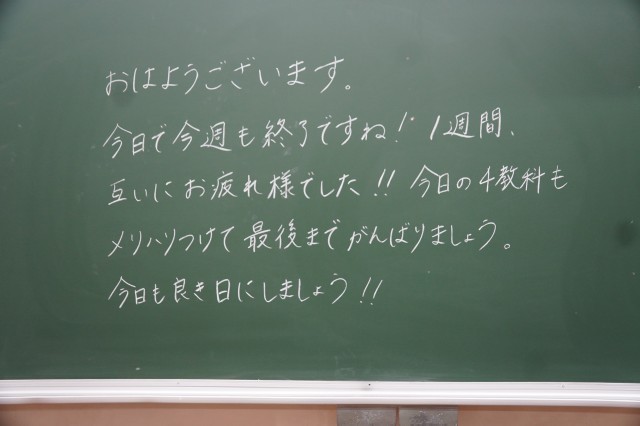 おはようございます。
今日で今週も終了ですね! 1週間、
互いにお疲れ様でした!! 今日の4教科も
メリハリつけて最後までがんばりましょう。
今日も良き日にしましょう!!